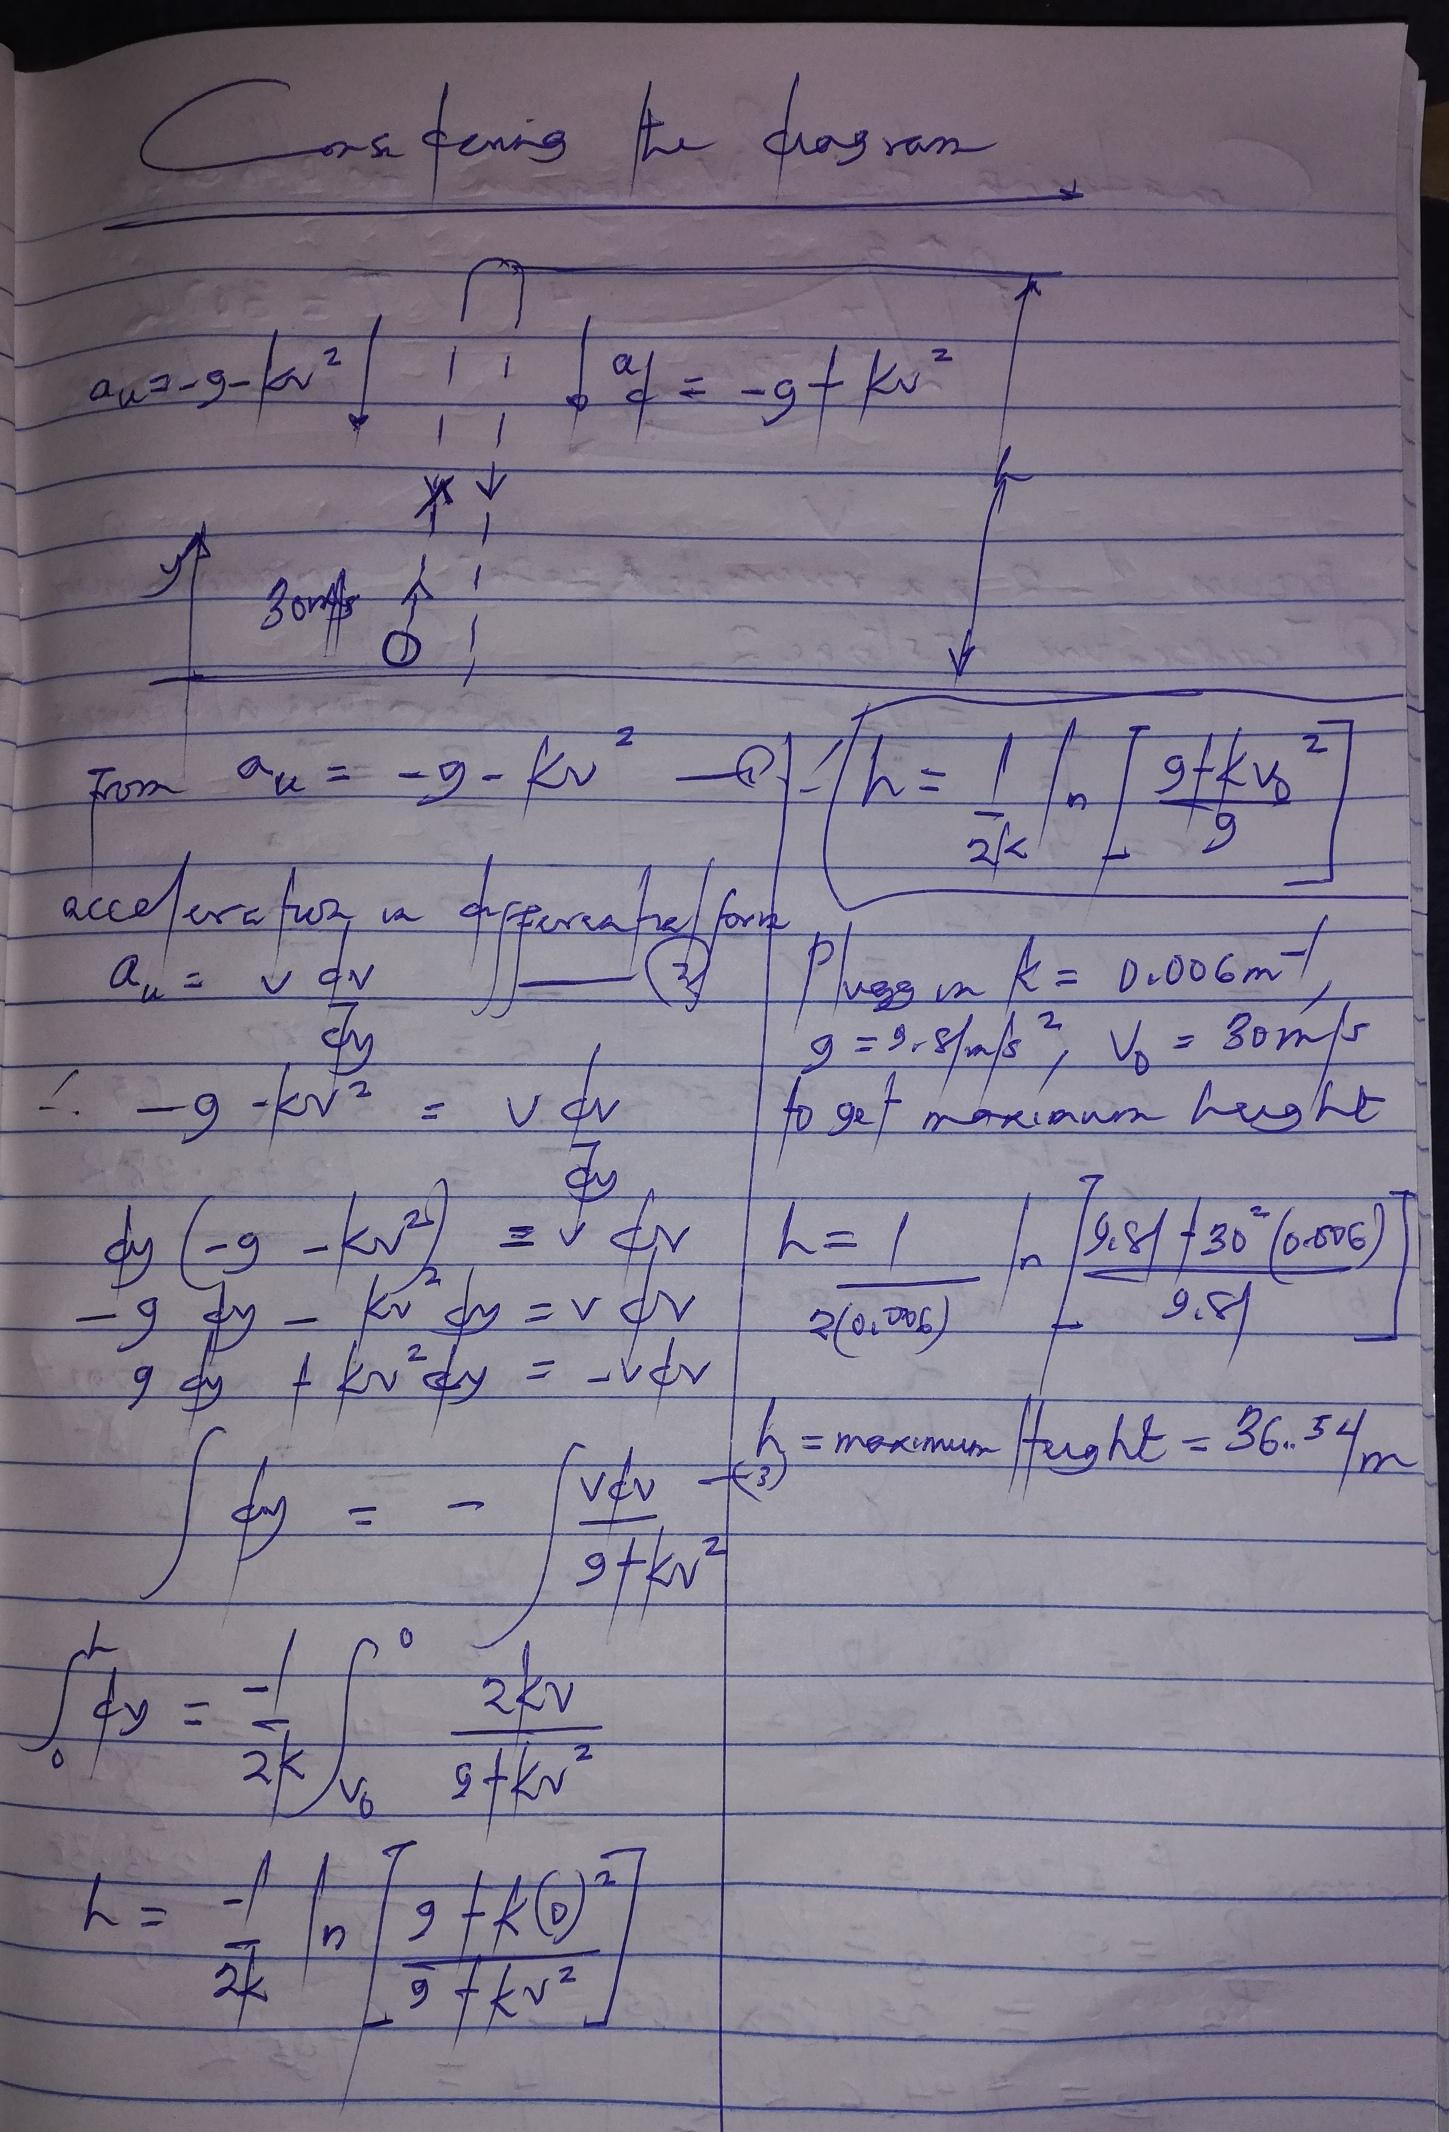 Considering the diagram
a_u = -g - kv²
a_d = -g + kv²
h
y
30m/s
From a_u = -g - kv² —①
acceleration in differential form
a_u = v dv/dy —②
∴ -g - kv² = v dv/dy
dy(-g - kv²) = v dv
-g dy - kv² dy = v dv
g dy + kv² dy = -v dv
∫ dy = - ∫ vdv/(g + kv²) —(3)
∫₀ʰ dy = -1/2k ∫_{v₀}^0 2kv/(g + kv²)
h = -1/2k ln [(g + k(0)²)/(g + kv²)]
∴ h = 1/2k ln [(g + kv₀²)/g]
Plugg in k = 0.006m⁻¹,
g = 9.81m/s², V₀ = 30m/s
to get maximum height
h = 1/2(0.006) ln [(9.81 + 30²(0.006))/9.81]
h = maximum Height = 36.54m